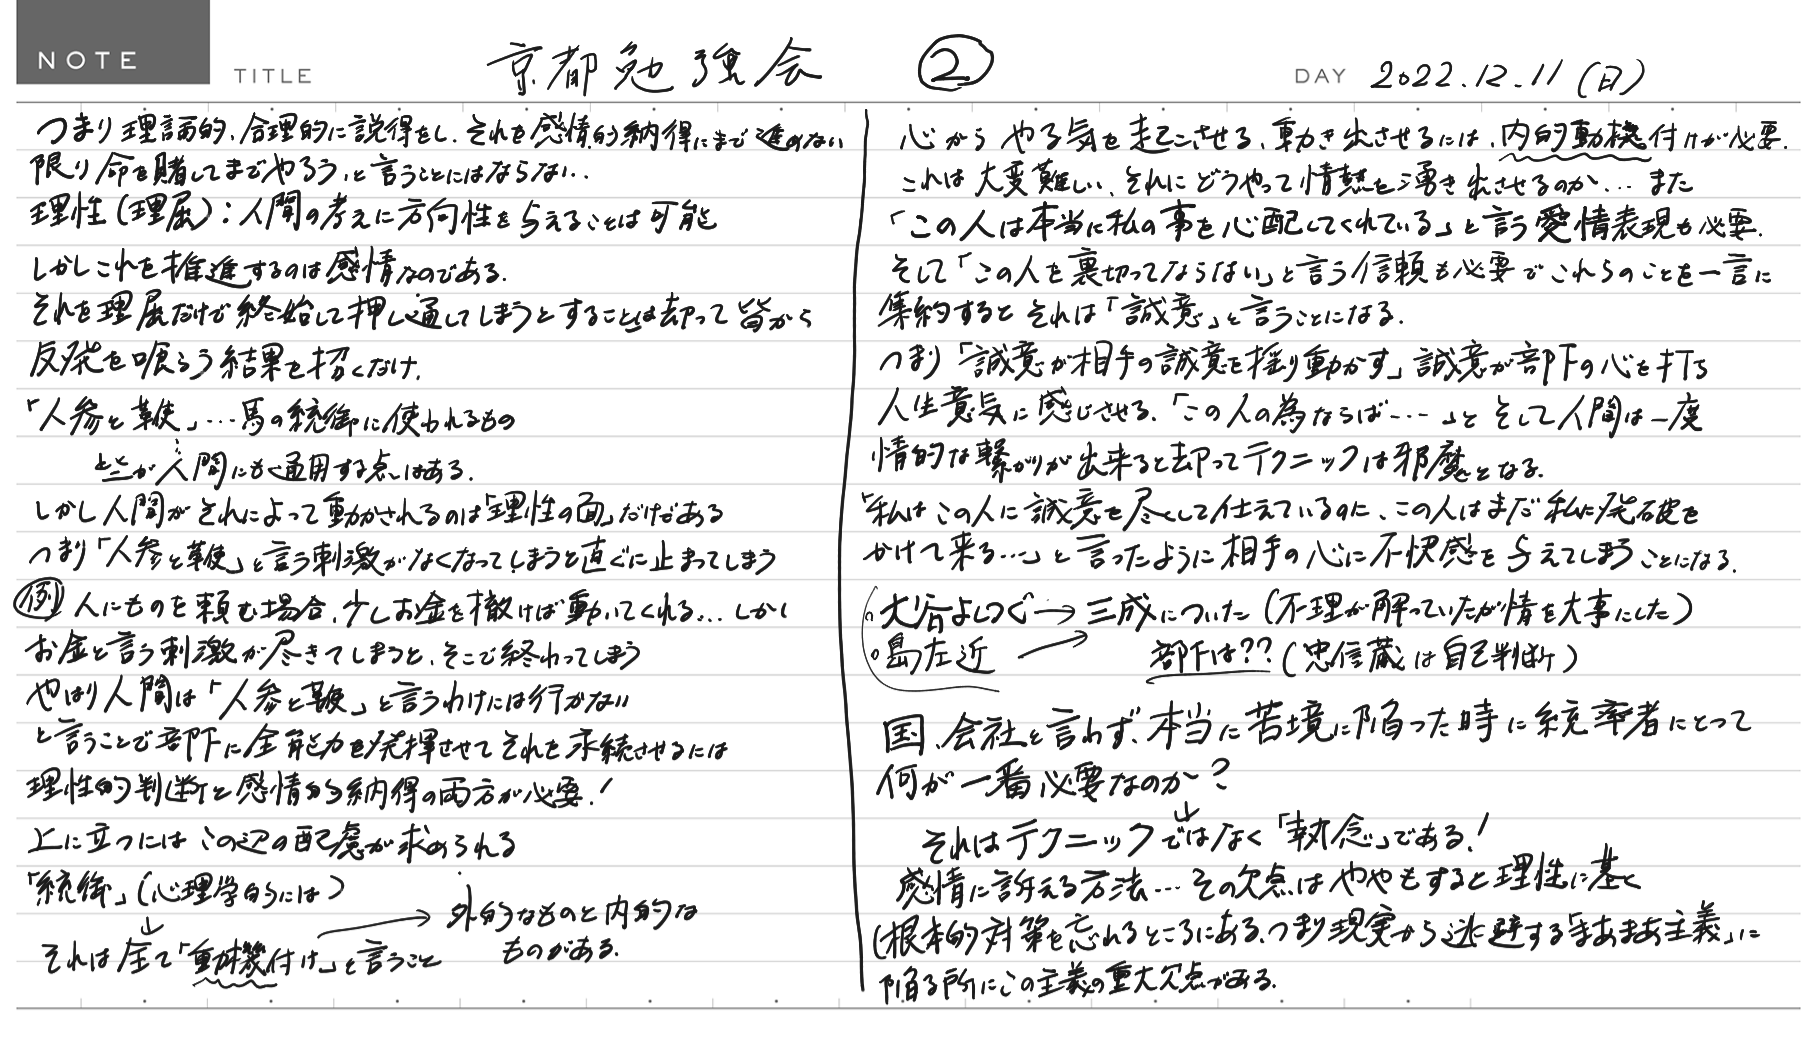 NOTE
TITLE 京都勉強会 ②
DAY 2022.12.11(日)
つまり理論的、合理的に説得をし、それを感情的納得にまで進めない
限り命を賭してまでやろう、と言うことにはならない..
理性(理屈):人間の考えに方向性を与えることは可能
しかしこれを推進するのは感情なのである.
それを理屈だけで終始して押し通してしまうとすることは却って皆から
反発を喰らう結果を招くだけ.
「人参と鞭」…馬の統御に使われるもの
ところが人間にも通用する点はある.
しかし人間がそれによって動かされるのは「理性の面」だけである
つまり「人参と鞭」と言う刺激がなくなってしまうと直ぐに止まってしまう
例 人にものを頼む場合、少しお金を撒けば動いてくれる… しかし
お金と言う刺激が尽きてしまうと、そこで終わってしまう
やはり人間は「人参と鞭」と言うわけには行かない
と言うことで部下に全能力を発揮させてそれを永続させるには
理性的判断と感情的納得の両方が必要!
上に立つにはこの辺の配慮が求められる
「統御」(心理学的には)
↓
それは全て「動機付け」と言うこと
→ 外的なものと内的な
ものがある.
心からやる気を起こさせる、動き出させるには、内的動機付けが必要.
これは大変難しい、それにどうやって情熱を湧き出させるのか… また
「この人は本当に私の事を心配してくれている」と言う愛情表現も必要.
そして「この人を裏切ってならない」と言う信頼も必要でこれらのことを一言に
集約するとそれは「誠意」と言うことになる.
つまり「誠意が相手の誠意を揺り動かす」誠意が部下の心を打る
人生意気に感じさせる.「この人の為ならば----」と そして人間は一度
情的な繋がりが出来ると却ってテクニックは邪魔となる.
「私はこの人に誠意を尽くして仕えているのに、この人はまだ私に発破を
かけて来る…」と言ったように相手の心に不快感を与えてしまうことになる.
○大谷よしつぐ→三成についた(不理が解っていたが情を大事にした)
○島左近 → 部下は??(忠信蔵は自己判断)
国、会社と言わず、本当に苦境に陥った時に統率者にとって
何が一番必要なのか?
↓
それはテクニックではなく「執念」である!
感情に訴える方法…その欠点はややもすると理性に基く
(根本的対策を忘れるところにある、つまり現実から逃避する「まあまあ主義」に
陥る所にこの主義の重大欠点がある.